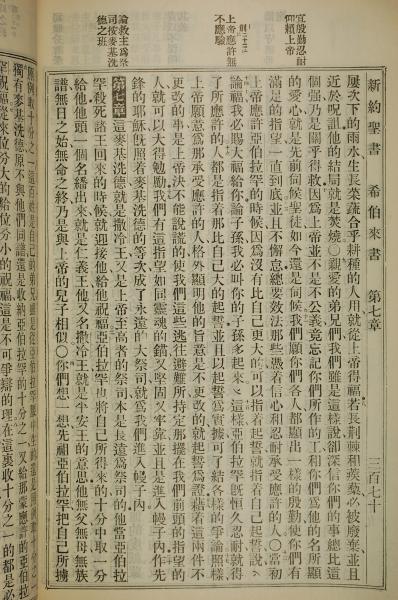 新約聖書　希伯來書　第七章　百七十
宜殷勤忍耐
仰賴上帝
上帝應許無
不應驗
論救主爲祭
司按麥基洗
德之班
屢次下的雨水生長菜蔬合乎耕種的人用就從上帝得福若長荆棘和蒺藜必被廢棄並且
近於咒詛他的結局就是焚燒〇親愛的弟兄們我們雖是這樣說卻深信你們的事總比這
個強乃是關乎得救因爲上帝並不是不公義竟忘記你們所作的工和你們爲他的名所顯
的愛心就是先前伺候聖徒如今還是伺候我們願你們各人都顯出一樣的殷勤使你們有
滿足的指望一直到底並且不懈怠總要效法那些憑着信心和忍耐承受應許的人〇當初
上帝應許亞伯拉罕的時候因爲沒有比自己更大的可以指着起誓就指着自己起誓說
論福我必賜大福給你論子孫我必叫你的子孫多起來這樣亞伯拉罕旣恒久忍耐就得
了所應許的人都是指着那比自己大的起誓並且以起誓爲實據可了結各樣的爭論照樣
上帝願意爲那承受應許的人格外顯明他的旨意是不更改的就起誓爲證藉着這兩件不
更改的事是上帝決不能說謊的使我們這些逃往避難所持定那擺在我們前頭的指望的
人就可以大得勉勵我們有這指望如同靈魂的錨又堅固又牢靠並且是進入幔子內作先
鋒的耶穌旣照着麥基洗德的等次成了永遠的大祭司就爲我們進入幔子內
第七章這麥基洗德就是撒冷王又是上帝至高者的祭司本是長遠爲祭司的他當亞伯拉
罕殺死諸王回來的時候就迎接他給他祝福亞伯拉罕也將自己所得來的十分中取一分
給他他頭一個名繙出來就是仁義王他又名撒冷王就是平安王的意思他無父無母無族
譜無日之始無命之終乃是與上帝的兒子相似〇你們想一想先祖亞伯拉罕把自己所擄
獨有麥基洗德原不與他們同譜還是收納亞伯拉罕的十分之一又給那蒙應許的亞伯拉
罕祝福從來位分大的給位分小的祝福這是不可爭辯的理在這裏收十分之一的都是必